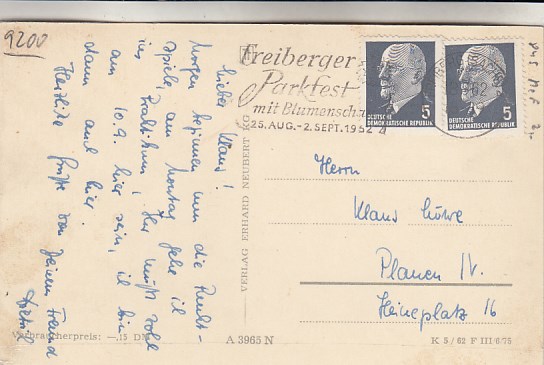 9200
Lieber Klaus!
Morgen beginnen nun die
spiele, am Montag gehe ich
ins Praktikum. Ihr müßt wohl
am 10.9. hier sein, ich bin
dann auch hier.
Herzliche Grüße von Deinem Freund
Freiberger
Parkfest
mit Blumenscha
25. AUG. - 2. SEPT. 1962
5
DEUTSCHE
DEMOKRATISCHE REPUBLIK
5
DEUTSCHE
DEMOKRATISCHE REPUBLIK
VERLAG ERHARD NEUBERT KG
Herrn
Klaus Löwe
Plauen IV.
Heineplatz 16
Verbraucherpreis: —,15 DM
A 3965 N
K 5/62 F III/6/75